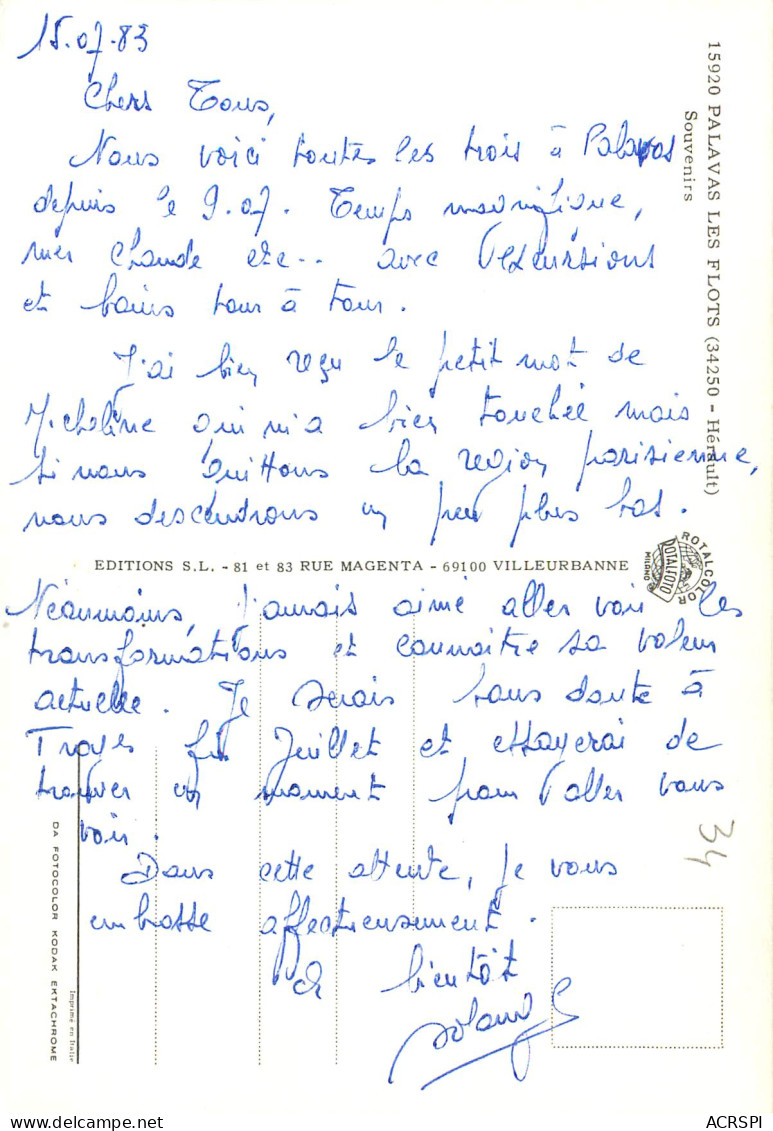 15.07.83
Chers Tous,
Nous voici toutes les trois à Palavas
depuis le 9.07. Temps magnifique,
mer chaude etc... avec excursions
et bains tour à tour.
J'ai bien reçu le petit mot de
Micheline qui m'a bien touchée mais
si nous quittons la region parisienne,
nous descendrons un peu plus bas.
Néanmoins, j'aurais aimé aller voir les
transformations et connaître sa valeur
actuelle. Je serais sans doute à
Troyes fin Juillet et essayerai de
trouver un moment pour aller vous
voir.
Dans cette attente, je vous
embrasse affectueusement.
à bientôt
15920 PALAVAS LES FLOTS (34250 - Hérault)
Souvenirs
EDITIONS S.L. - 81 et 83 RUE MAGENTA - 69100 VILLEURBANNE
ROTALCOLOR
ROTALFOTO
MILANO
34
DA FOTOCOLOR KODAK EKTACHROME
Imprimé en Italie
ACRSPI